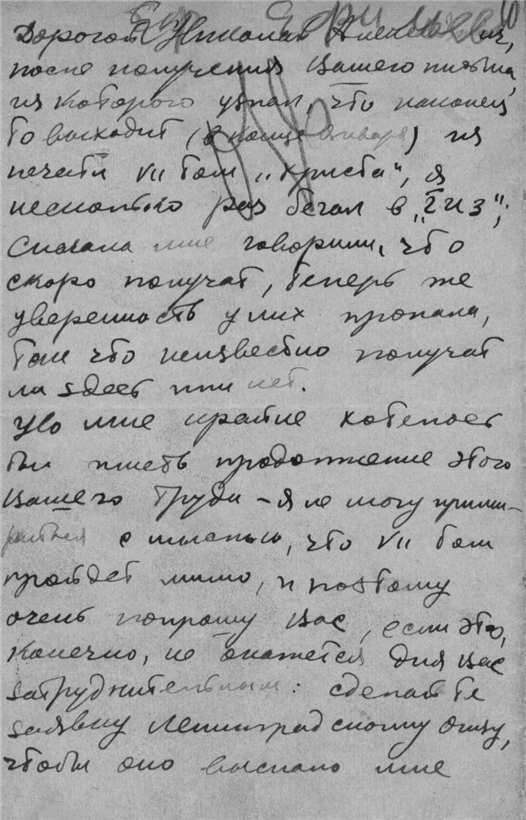 Дорогой Николай Александрович,
после получения Вашего письма,
из которого узнал, что наконец
то выходит (в конце января) из
печати VII том „Христа“, я
несколько раз бегал в „ГИЗ“;
сначала мне говорили, что
скоро получат, теперь же
уверенность у них пропала,
так что неизвестно получат
ли здесь или нет.
Но мне крайне хотелось
бы иметь продолжение этого
Вашего труда – я не могу прими-
риться с мыслью, что VII том
пройдет мимо, и поэтому
очень попрошу Вас, если это,
конечно, не окажется для Вас
затруднительным: сделайте
заявку Ленинградскому Огизу,
чтобы оно выслало мне